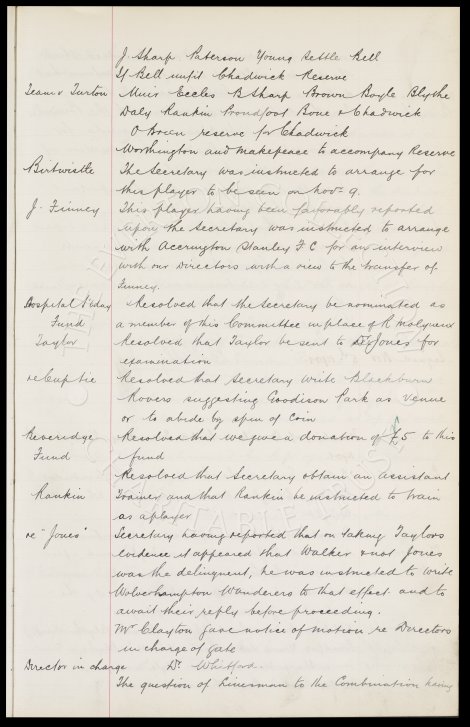 J Sharp Paterson Young Settle Bell
If Bell unfit Chadwick Reserve
Team v Turton Muir Eccles B Sharp Brown Boyle Blythe
Daly Rankin Proudfoot Bone & Chadwick
O'Brien reserve for Chadwick
Worthington and Makepeace to accompany Reserve
Birtwistle The Secretary was instructed to arrange for
this player to be seen on Novr 9.
J. Finney This player having been favorably reported
upon the Secretary was instructed to arrange
with Accrington Stanley F.C. for an interview
with our Directors with a view to the transfer of
Finney.
Hospital Fund Resolved that the Secretary be nominated as
a member of this Committee in place of R Molyneux
Taylor Resolved that Taylor be sent to Dr Jones for
examination
re Cup tie Resolved that Secretary write Blackburn
Rovers suggesting Goodison Park as venue
or to abide by spin of coin
Beveridge Resolved that we give a donation of £5 to this
Fund fund
Resolved that Secretary obtain an assistant
Rankin Trainer and that Rankin be instructed to train
as a player
re "Jones" Secretary having reported that on taking Taylors
evidence it appeared that Walker & not Jones
was the delinquent, he was instructed to write
Wolverhampton Wanderers to that effect and to
await their reply before proceeding.
Mr Clayton gave notice of motion re Directors
in charge of gate
Director in charge Dr Whitford.
The question of Linesman to the Combination having